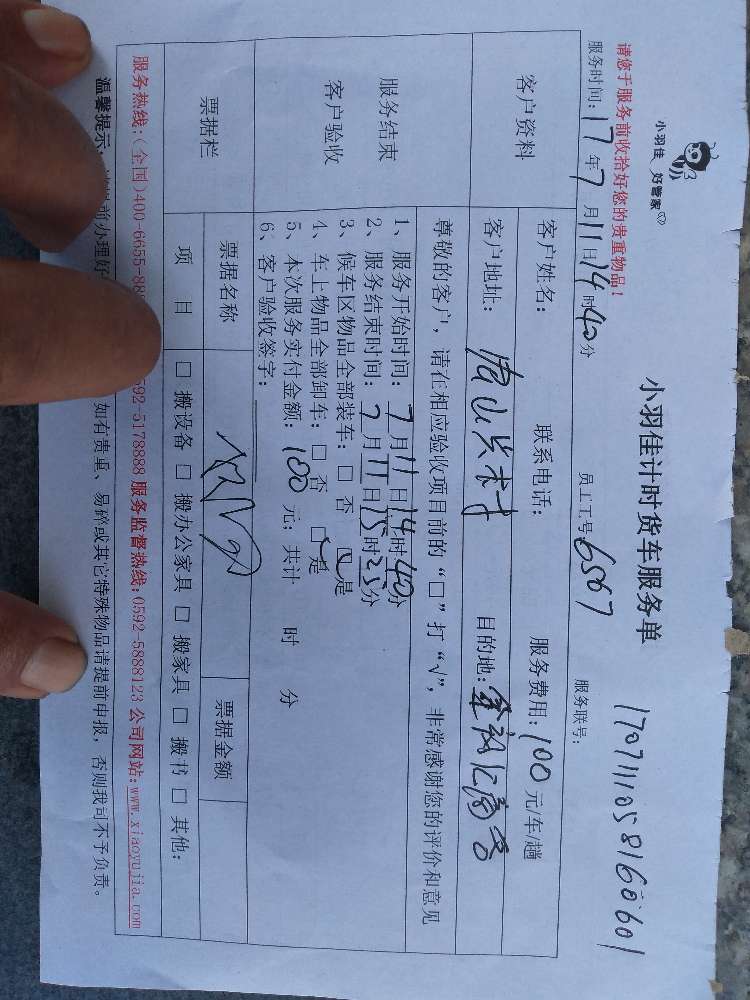 小羽佳 好管家
小羽佳计时货车服务单
1707111058160601
请您于服务前收拾好您的贵重物品！
服务时间：17年7月11日14时40分 员工工号6567 服务联号：
客户资料
客户姓名： 联系电话： 服务费用：100元/车/趟
客户地址： 目的地：
服务结束
客户验收
尊敬的客户，请在相应验收项目前的“□”打“√”，非常感谢您的评价和意见
1、服务开始时间：7月11日14时40分
2、服务结束时间：7月11日15时25分
3、候车区物品全部装车：□ 否 □ 是
4、车上物品全部卸车：□ 否 □ 是
5、本次服务实付金额：100元；共计 时 分
6、客户验收签字：
票据栏
票据名称 票据金额
项 目 □ 搬设备 □ 搬办公家具 □ 搬家具 □ 搬书 □ 其他：
服务热线：(全国)400-6655-88 592-5178888 服务监督热线：0592-5888123 公司网站：www.xiaoyujia.com
温馨提示： 前办理好 如有贵重、易碎或其它特殊物品请提前申报，否则我司不予负责。